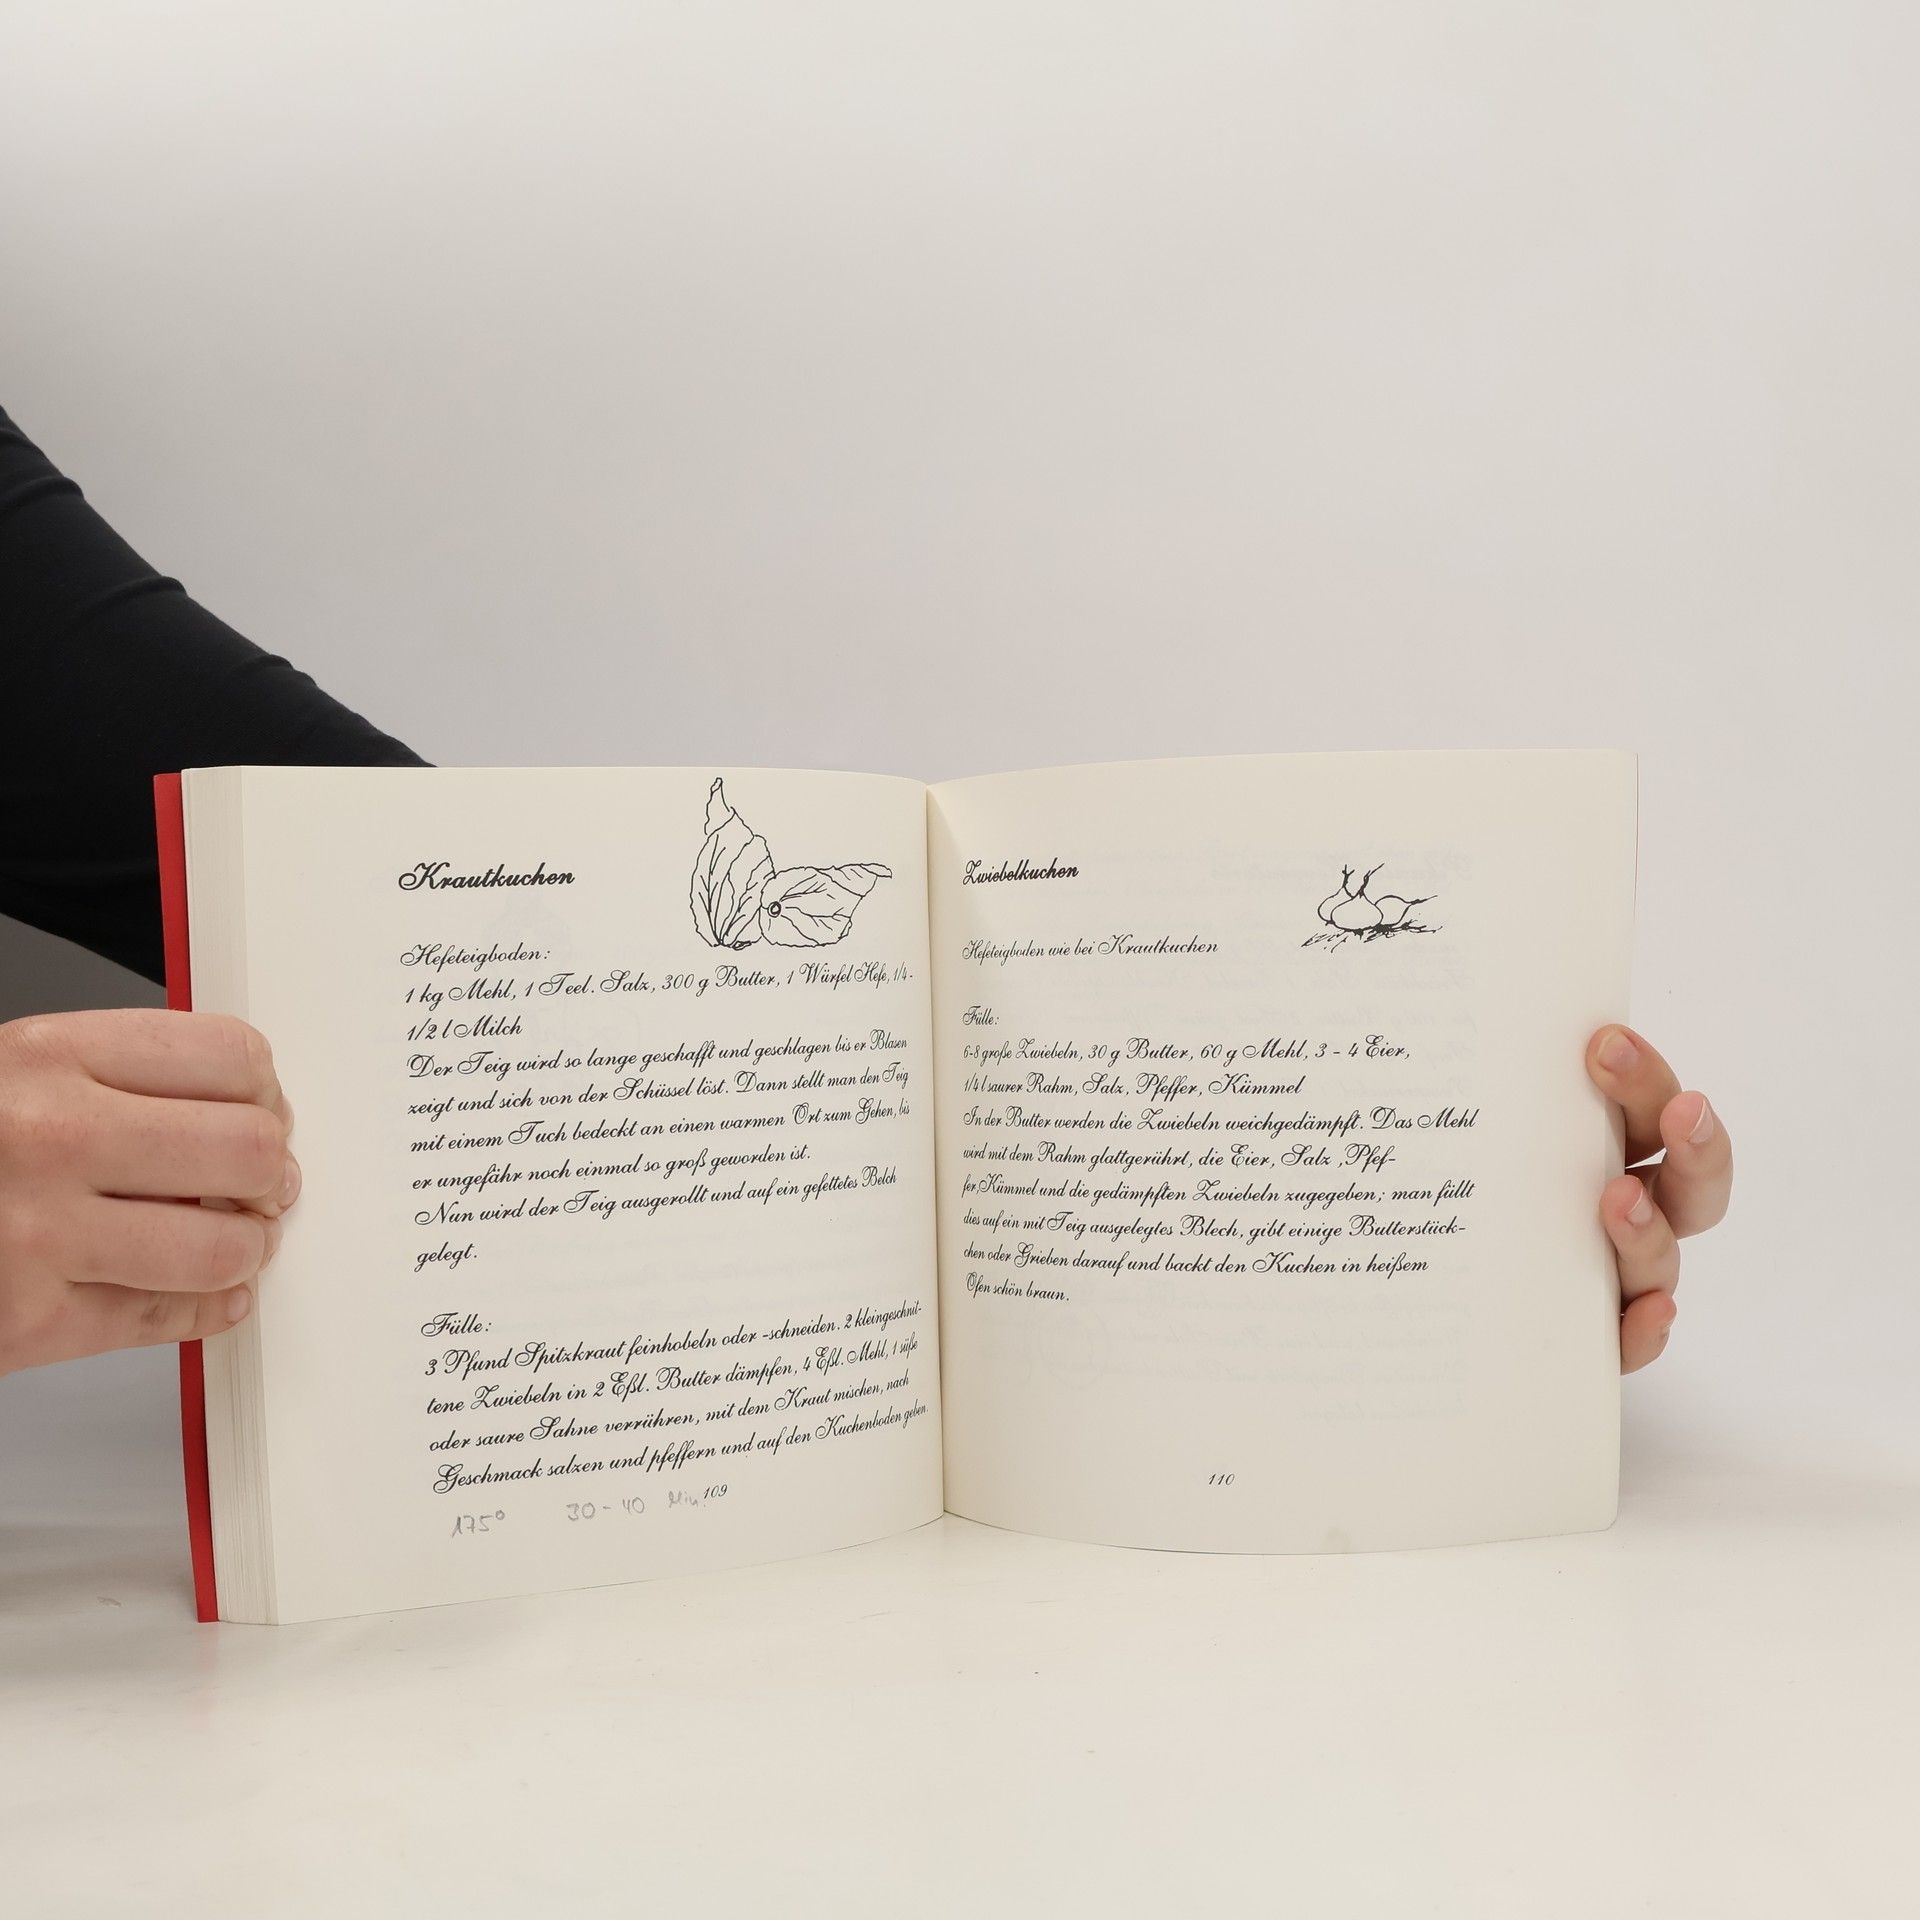 Krautkuchen
Hefeteigboden:
1 kg Mehl, 1 Teel. Salz, 300 g Butter, 1 Würfel Hefe, 1/4-
1/2 l Milch
Der Teig wird so lange geschafft und geschlagen bis er Blasen
zeigt und sich von der Schüssel löst. Dann stellt man den Teig
mit einem Tuch bedeckt an einen warmen Ort zum Gehen, bis
er ungefähr noch einmal so groß geworden ist.
Nun wird der Teig ausgerollt und auf ein gefettetes Belch
gelegt.
Fülle:
3 Pfund Spitzkraut feinhobeln oder -schneiden. 2 kleingeschnit-
tene Zwiebeln in 2 Eßl. Butter dämpfen, 4 Eßl. Mehl, 1 süße
oder saure Sahne verrühren, mit dem Kraut mischen, nach
Geschmack salzen und pfeffern und auf den Kuchenboden geben.
109
175° 30-40 Min.
Zwiebelkuchen
Hefeteigboden wie bei Krautkuchen
Fülle:
6-8 große Zwiebeln, 30 g Butter, 60 g Mehl, 3 - 4 Eier,
1/4 l saurer Rahm, Salz, Pfeffer, Kümmel
In der Butter werden die Zwiebeln weichgedämpft. Das Mehl
wird mit dem Rahm glattgerührt, die Eier, Salz ,Pfef-
fer,Kümmel und die gedämpften Zwiebeln zugegeben; man füllt
dies auf ein mit Teig ausgelegtes Blech, gibt einige Butterstück-
chen oder Grieben darauf und backt den Kuchen in heißem
Ofen schön braun.
110